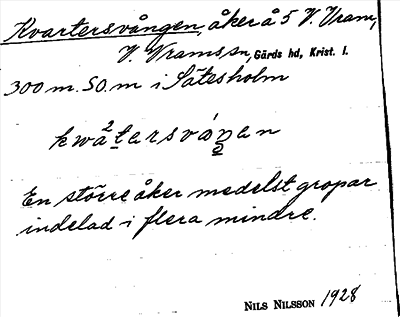 Kvartersvången, åker å 5 V. Vram,
V. Vrams sn, Gärds hd, Krist. l.
300 m. SO. m i Sätesholm
kwa²tersváŋen
2
En större åker medelst gropar
indelad i flera mindre.
NILS NILSSON 1928